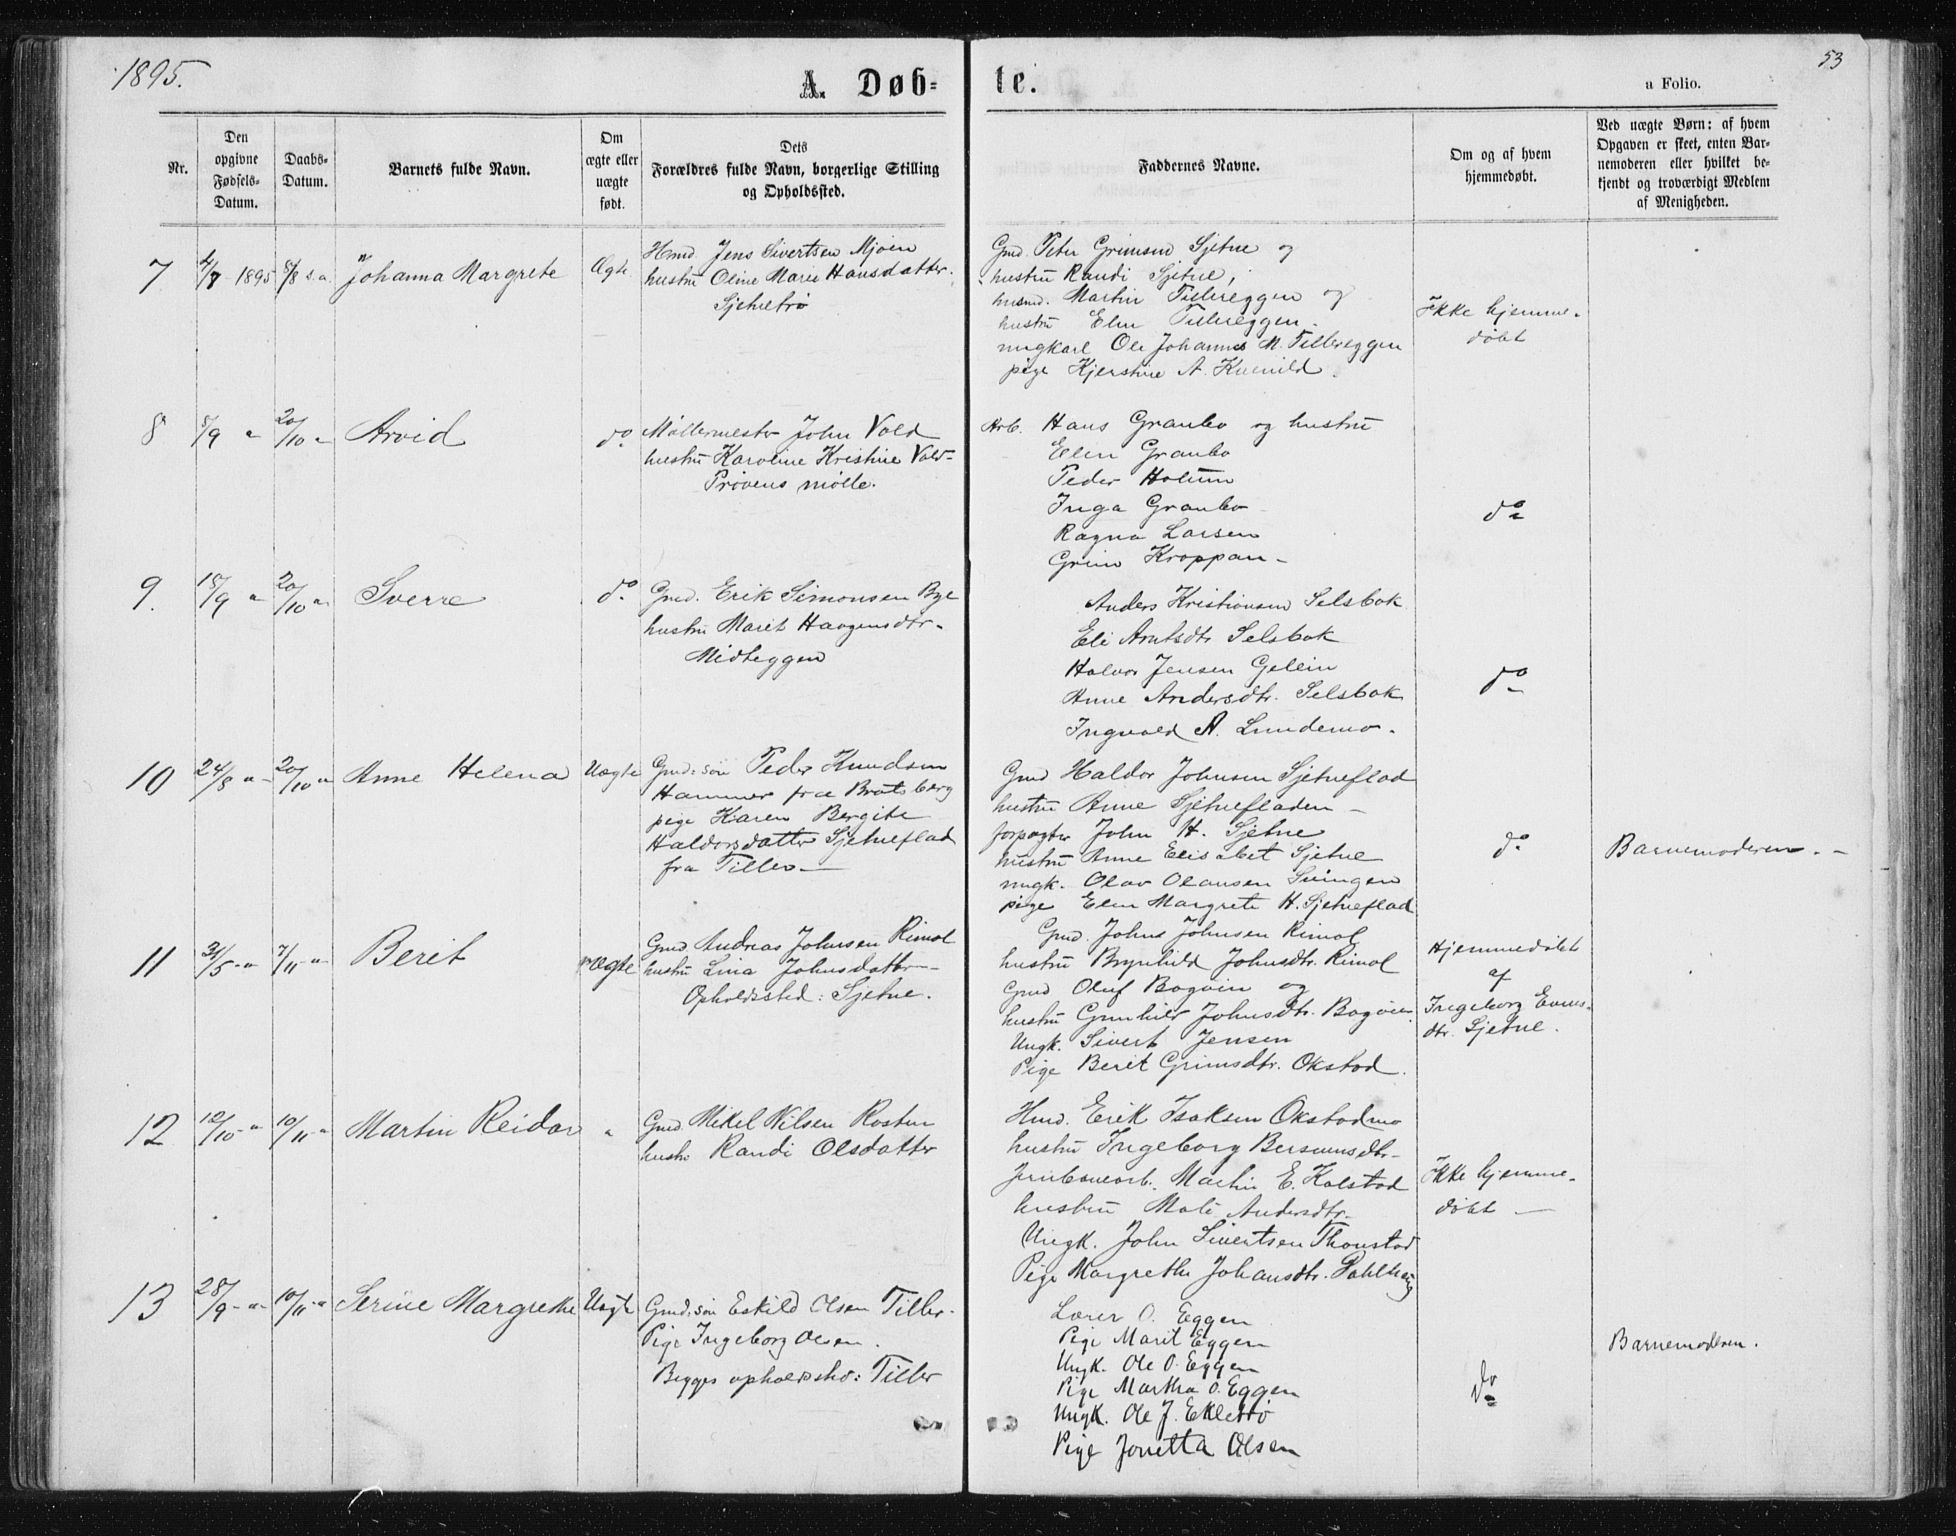 1895.
A. Døb-
te.
53
a Folio.
Nr.
Den opgivne Fødsels-Datum.
Daabs-Datum.
Barnets fulde Navn.
Om ægte eller uægte født.
Dets Forældres fulde Navn, borgerlige Stilling og Opholdssted.
Faddernes Navne.
Om og af hvem hjemmedøbt.
Ved uægte Børn: af hvem Opgaven er skeet, enten Barnemoderen eller hvilket bekjendt og troværdigt Medlem af Menigheden.
7 4/7 1895 /8 s.a. Johanna Margrete Ægte
Hmd. Jens Sivertsen Mjøen
hustru Oline Marie Hansdatter
Sjetnetrø
Gmd. Peter Grimsen Sjetne og
hustru Randi Sjetne,
husmd. Martin Tillereggen og
hustru Elen Tillereggen
ungkarl Ole Johannes M. Tillereggen
pige Kjerstine A. Kvenild.
Ikke hjemme-
døbt
8 8/9 " 20/10 " Arvid do
Møllermester John Vold
hustru Karoline Kristine Vold
Prøvens mølle.
Arb. Hans Granbo og hustru
Elen Granbo
Peder Holum
Inga Granbo
Ragna Larsen
Grim Kroppan
do
9. 18/9 " 20/10 " Sverre do
Gmd. Erik Simonsen Bye
hustru Marit Haagensdtr.
Midteggen
Anders Kristiansen Selsbak
Eli Arntsdtr Selsbak
Halvor Jensen
Anne Andersdtr. Selsbak
Ingvald A. Lundemo.
do
10 24/8 " 20/10 " Anne Helena Uægte
Gmd. søn Peder Knudsen
Hammer fra Bratsberg
pige Karen Bergite
Haldorsdatter Sjetneflad
fra Tiller
Gmd Haldor Johnsen Sjetneflad
hustru Anne Sjetnefladen
forpagter John H. Sjetne
hustru Anne Elisabet Sjetne
ungk. Olav Olausen Svingen
pige Elen Margrete H. Sjetneflad
do
Barnemoderen.
11 31/5 " 7/11 " Berit Ægte
Gmd. Andreas Johnsen Rimol
hustru Lina Johnsdatter
Opholdssted: Sjetne.
Gmd. Johns Johnsen Rimol
hustru Brynhild Johnsdtr. Rimol
Gmd Oluf Bagøien og
hustru Gunhild Johnsdtr. Bagøien
Ungk. Sivert Jensen
Pige Beret Grimsdtr. Okstad.
Hjemmedøbt
af
Ingeborg
dtr. Sjetne.
12 12/10 " 10/11 " Martin Reidar "
Gmd. Mikel Nilsen Rosten
hustr Randi Olsdatter
Hmd. Erik Isaksen Okstadmo
hustru Ingeborg Bersvensdtr.
Jernbanearb. Martin E. Kolstad
hustru Mali Andersdtr.
Ungk. John Sivertsen Thonstad
Pige Margrethe Johansdtr. Dahlhaug
Ikke hjemme-
døbt
13 28/9 " 10/11 " Serine Margrethe Uægt
Gmd. søn Eskild Olsen Tiller.
Pige Ingeborg Olsen.
Begges opholdssted: Tiller
Lærer O. Eggen
Pige Marit Eggen
Ungk. Ole O. Eggen
Pige Martha O. Eggen
Ungk. Ole J. Ekletrø
Pige Jonetta Olsen
do
Barnemoderen.